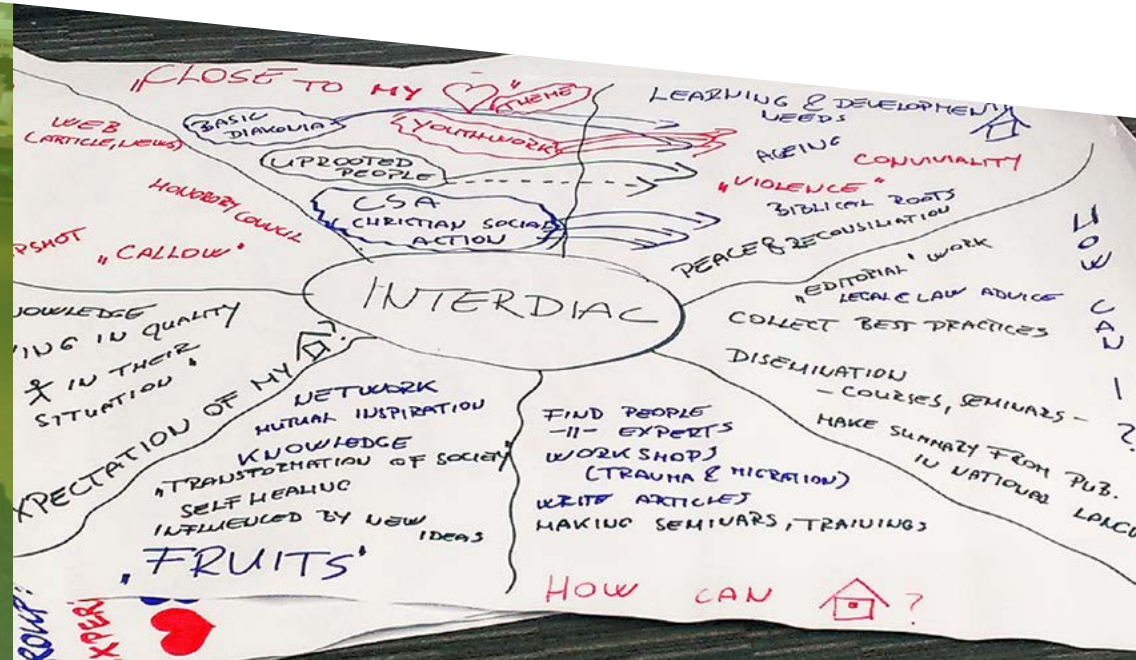 "CLOSE TO MY
THEME"
BASIC
DIAKONIA
YOUTHWORK
UPROOTED
PEOPLE
CSA
CHRISTIAN SOCIAL
ACTION
LEARNING & DEVELOPMENT
NEEDS
AGEING
CONVIVIALITY
"VIOLENCE"
BIBLICAL ROOTS
PEACE & RECONSILIATION
WEB
(ARTICLE, NEWS)
HONORORY COUNCIL
PSHOT
"CALLOW"
INTERDIAC
HOW CAN I ?
"EDITORIAL" WORK
LEGAL & LAW ADVICE
COLLECT BEST PRACTICES
DISEMINATION
- COURSES, SEMINARS -
MAKE SUMMARY FROM PUB.
IN NATIONAL LANGU
OWLEDGE
ING IN QUALITY
& IN THEIR
SITUATION"
XPECTATION OF MY ?
NETWORK
MUTUAL INSPIRATION
KNOWLEDGE
"TRANSFORMATION OF SOCIETY"
SELF HEALING
INFLUENCED BY NEW
IDEAS
"FRUITS"
FIND PEOPLE
-11- EXPERTS
WORKSHOPS
(TRAUMA & MIGRATION)
WRITE ARTICLES
MAKING SEMINARS, TRAININGS
HOW CAN ?
ROUP:
XPER